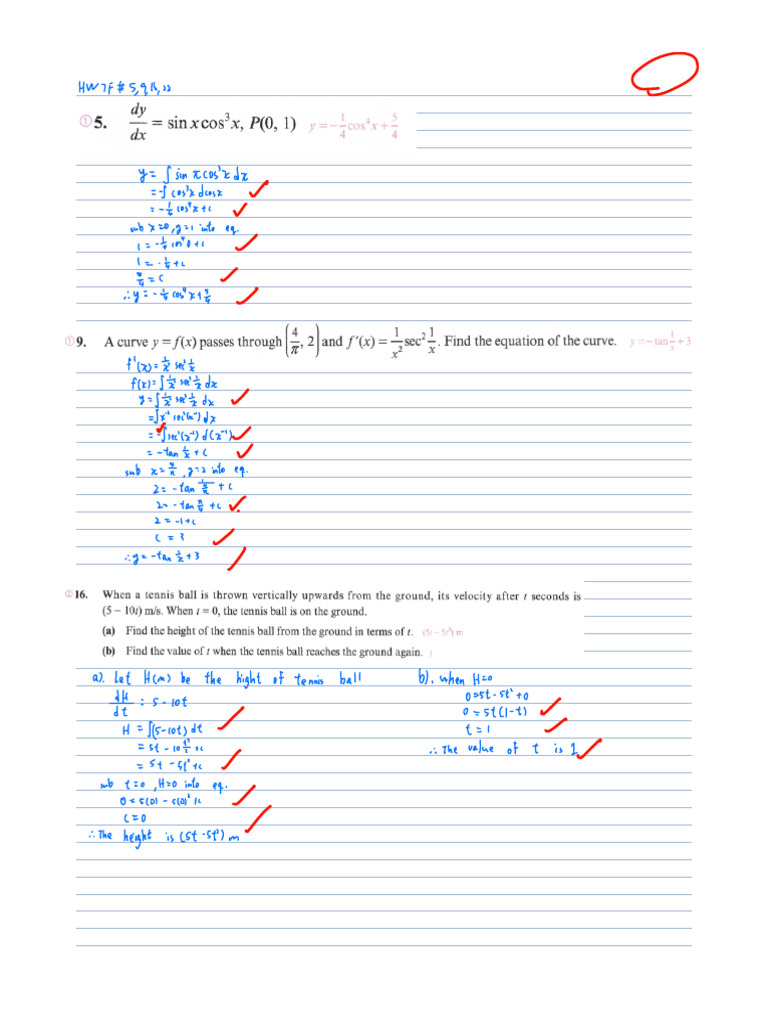 HW 7F # 5, 9, 16, 22
① 5. dy/dx = sin x cos³ x, P(0, 1) y = -1/4 cos⁴ x + 5/4
y = ∫ sin x cos³x dx
= -∫ cos³x dcosx
= -1/4 cos⁴x + c
sub x=0, y=1 into eq.
1 = -1/4 cos⁴0 + c
1 = -1/4 + c
5/4 = c
∴ y = -1/4 cos⁴x + 5/4
① 9. A curve y = f(x) passes through (4/π, 2) and f′(x) = 1/x² sec² 1/x. Find the equation of the curve. y = -tan 1/x + 3
f'(x) = 1/x² sec² 1/x
f(x) = ∫ 1/x² sec² 1/x dx
y = ∫ 1/x² sec² 1/x dx
= ∫ x⁻² sec²(x⁻¹) dx
= -∫ sec²(x⁻¹) d(x⁻¹)
= -tan 1/x + c
sub x = 4/π, y=2 into eq.
2 = -tan 1/(4/π) + c
2 = -tan π/4 + c
2 = -1 + c
c = 3
∴ y = -tan 1/x + 3
② 16. When a tennis ball is thrown vertically upwards from the ground, its velocity after t seconds is
(5 – 10t) m/s. When t = 0, the tennis ball is on the ground.
(a) Find the height of the tennis ball from the ground in terms of t. (5t – 5t²) m
(b) Find the value of t when the tennis ball reaches the ground again. 1
a). Let H(m) be the hight of tennis ball
dH/dt = 5-10t
H = ∫(5-10t) dt
= 5t - 10 t²/2 + c
= 5t - 5t² + c
sub t=0, H=0 into eq.
0 = 5(0) - 5(0)² + c
c = 0
∴ The height is (5t - 5t²) m
b). when H=0
0 = 5t - 5t² + 0
0 = 5t(1-t)
t = 1
∴ The value of t is 1